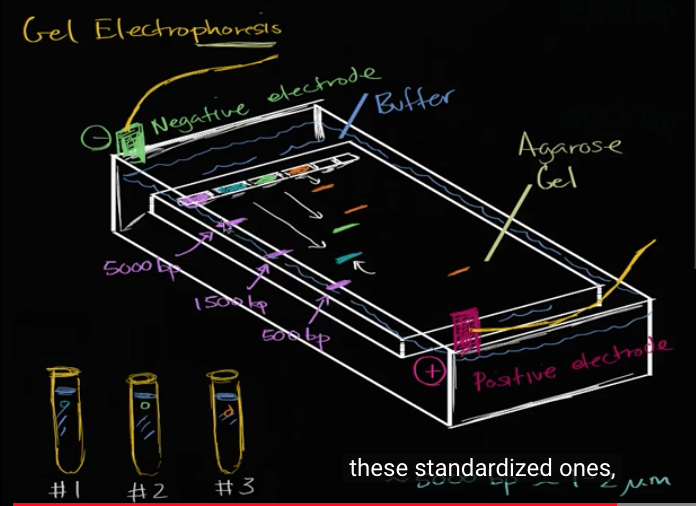 Gel Electrophoresis
Negative electrode
Buffer
Agarose
Gel
5000 bp
1500 bp
500 bp
Positive electrode
these standardized ones,
#1 #2 #3